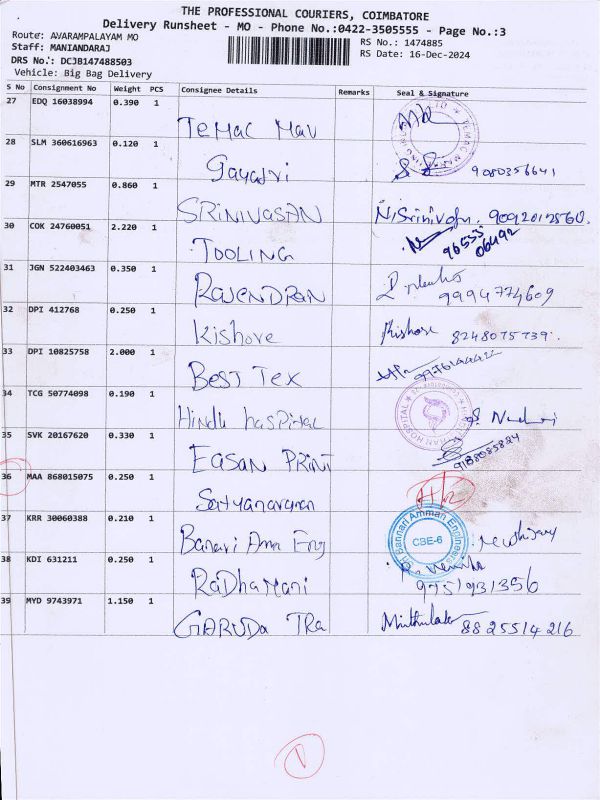 THE PROFESSIONAL COURIERS, COIMBATORE
Delivery Runsheet - MO - Phone No.:0422-3505555 - Page No.:3
Route: AVARAMPALAYAM MO
Staff: MANIANDARAJ
DRS No.: DCJB147488503
Vehicle: Big Bag Delivery
RS No.: 1474885
RS Date: 16-Dec-2024
S No Consignment No Weight PCS Consignee Details Remarks Seal & Signature
27 EDQ 16038994 0.390 1
Temac Mav
28 SLM 360616963 0.120 1
Gayatri 9080356641
29 MTR 2547055 0.860 1
SRINIVASAN
30 COK 24760051 2.220 1
TOOLING 96555 06492
31 JGN 522403463 0.350 1
RAJENDRAN 9994774609
32 DPI 412768 0.250 1
Kishore Kishore 8248075739.
33 DPI 10825758 2.000 1
BEST TEX
34 TCG 50774098 0.190 1
Hindu haspital
35 SVK 20167620 0.330 1
EASAN PRINT 9188085824
36 MAA 868015075 0.250 1
Satyanarayan
37 KRR 30060388 0.210 1
Banari Amm Eng
Bannari Amman Engineers
CBE-6
38 KDI 631211 0.250 1
RaDhamani 9751931356
39 MYD 9743971 1.150 1
GARUDa TRa 8825514216